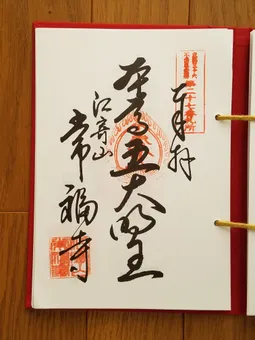 奉拝
第二十七番札所
本尊五大明王
江寄山
常福寺